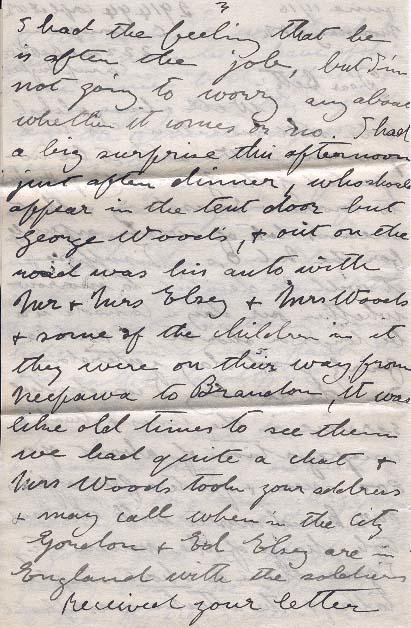 3
I had the feeling that he
is after the job, but I'm
not going to worry any about
whether it comes or no. I had
a big surprise this afternoon
just after dinner, who should
appear in the tent door but
George Woods, & out on the
road was his auto with
Mr & Mrs Elsey & Mrs Woods
& some of the children in it
they were on their way from
Neepawa to Brandon, It was
like old times to see them
we had quite a chat &
Mrs Woods took your address
& may call when in the city
Gordon & Ed Elsey are in
England with the soldiers
Received your letter